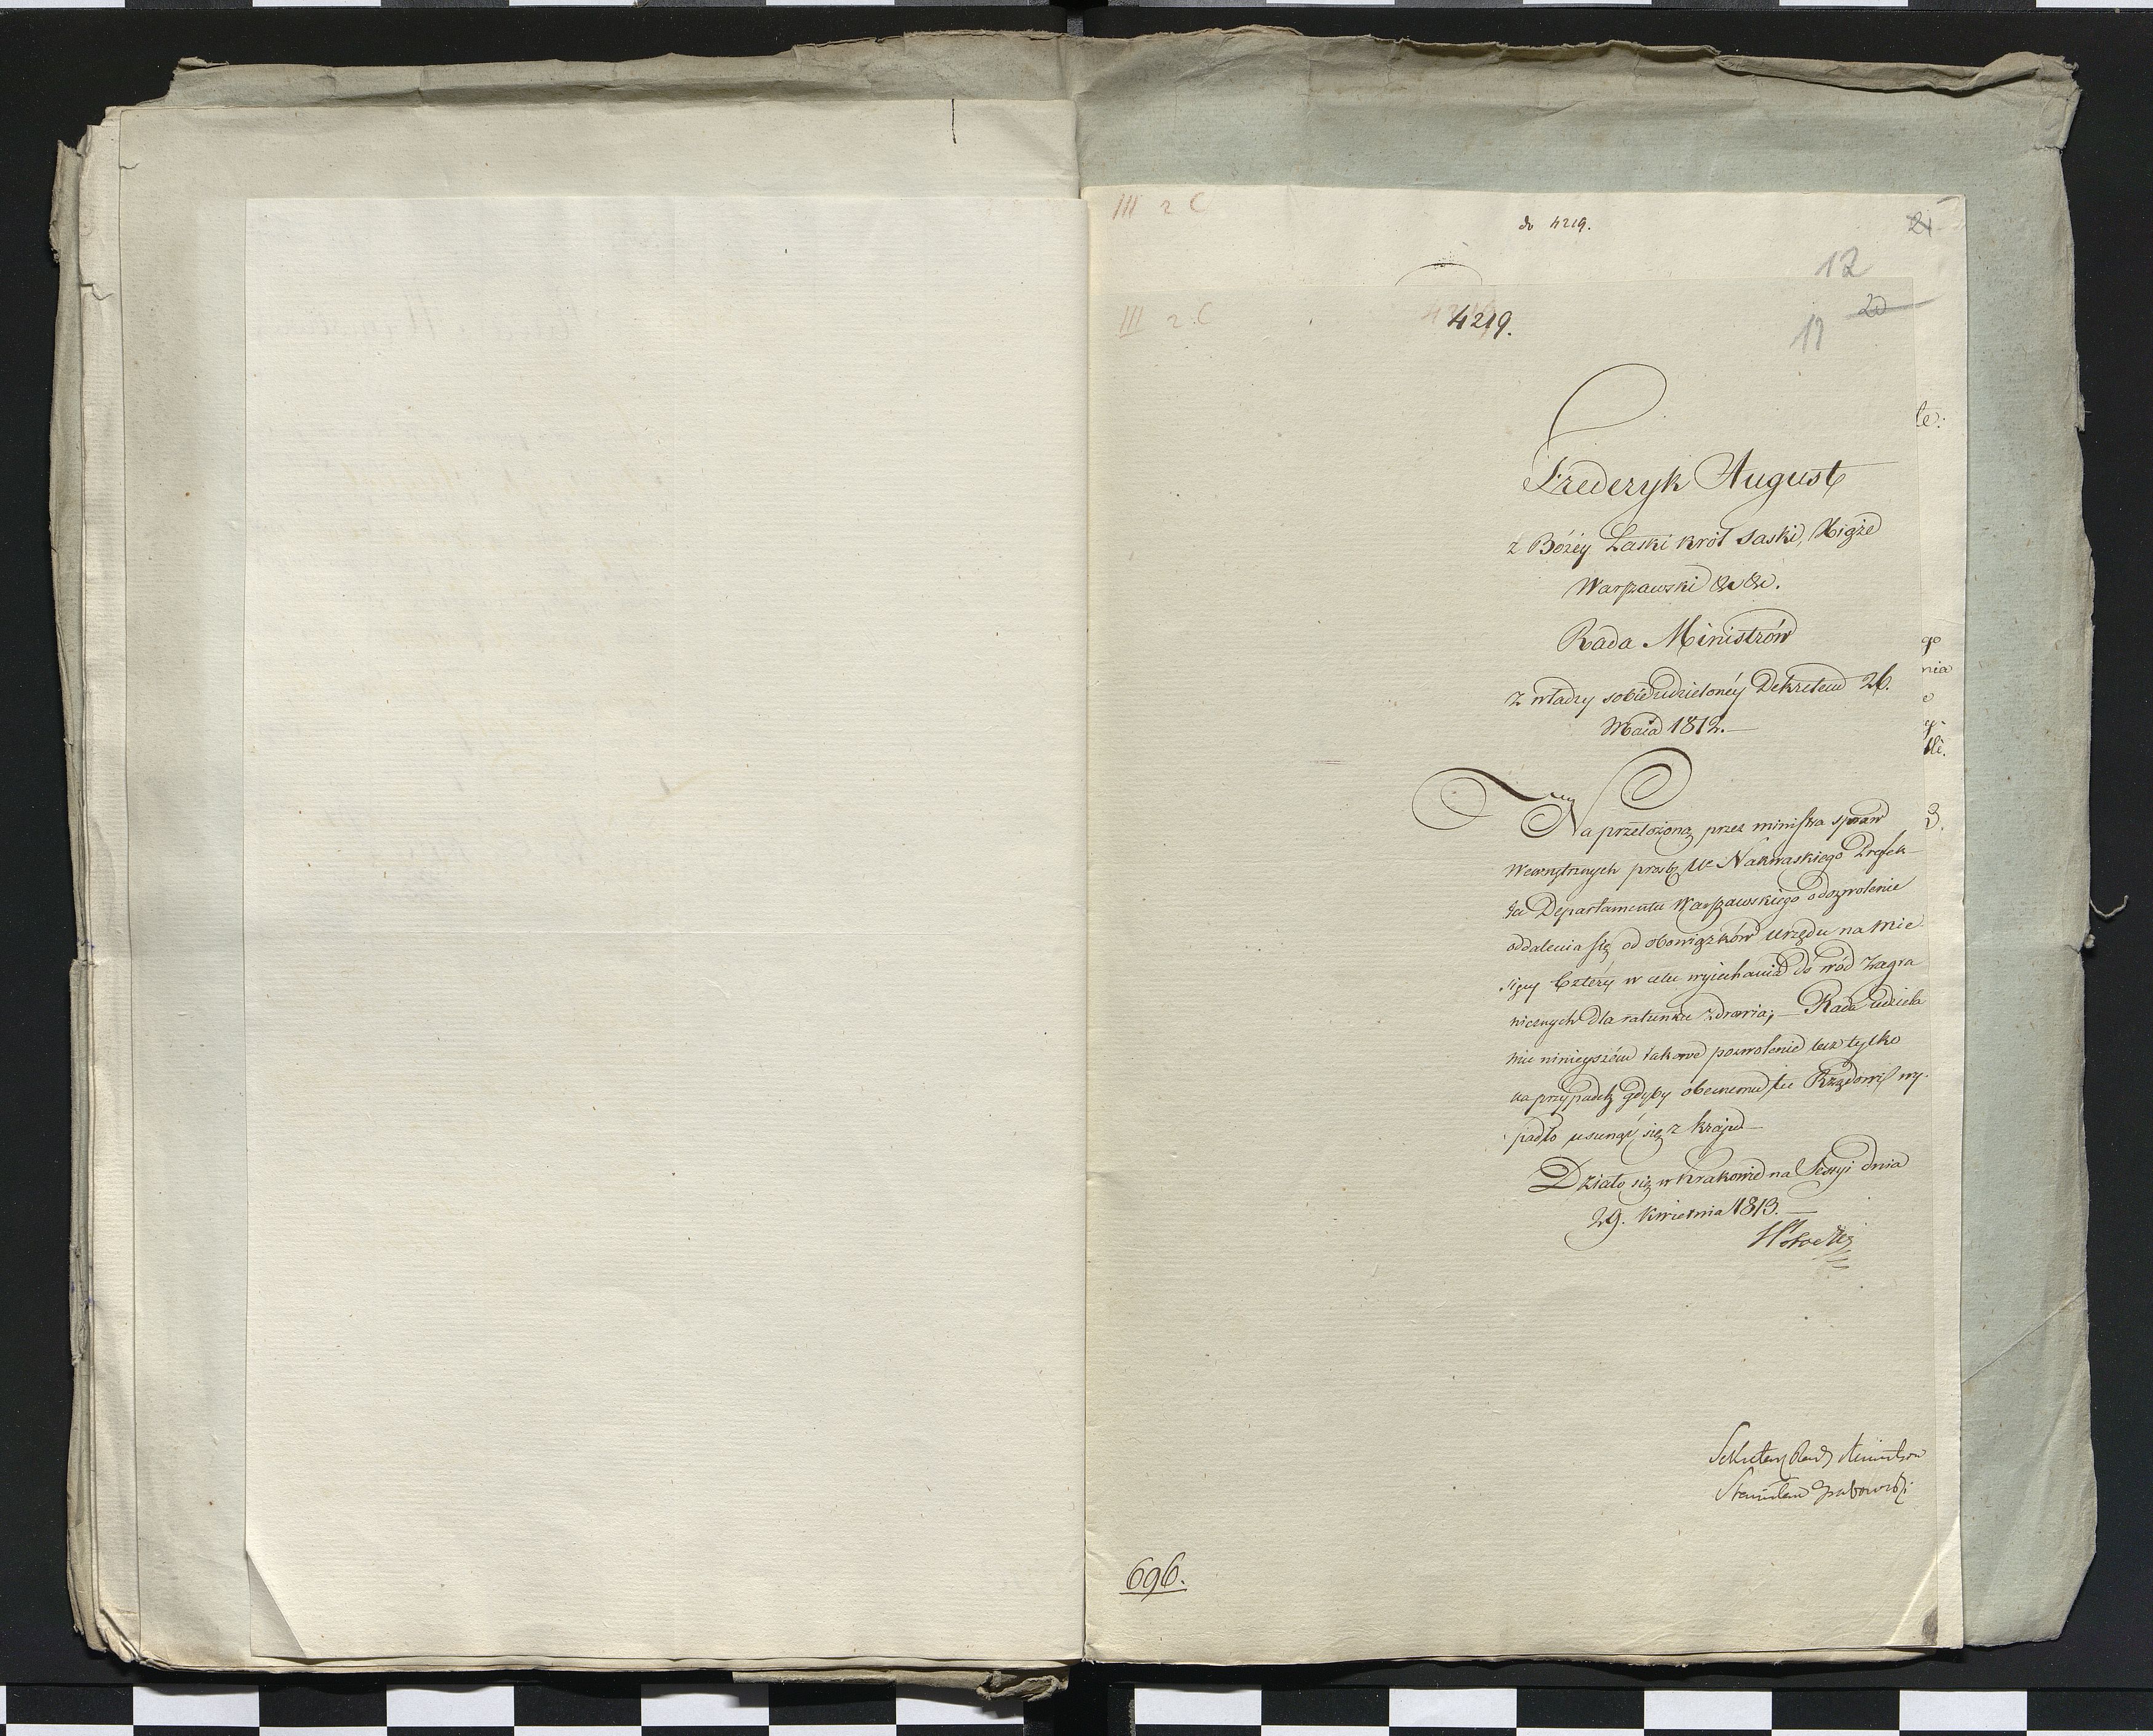 III 2 C
do 4219.
21
12
III 2. C
4219.
20
11
te:
Frederyk August
z Bożey Łaski król Saski, Xiąże
Warszawski &c &c.
Rada Ministrów
go
nia
z władzy sobie udzieloney Dekretem 26.
Maia 1812.—
Na przełożoną przez ministra spraw
3.
Wewnętrznych prośbę Nakwaskiego Prefek-
ta Departamentu Warszawskiego o dozwolenie
oddalenia się od obowiązków urzędu na Mie
sięcy Cztery w celu wyiechania do wód zagra
nicznych dla ratunku zdrowia; — Rada udziela
mu ninieyszém takowe pozwolenie lecz tylko
na przypadek gdyby obecnemu tu Rządowi wy-
padło usunąć się z kraju—
Działo się w Krakowie na Sessyi dnia
29. Kwietnia 1813.—
Sekretarz Rady Ministrów
Stanisław Grabowski
696.